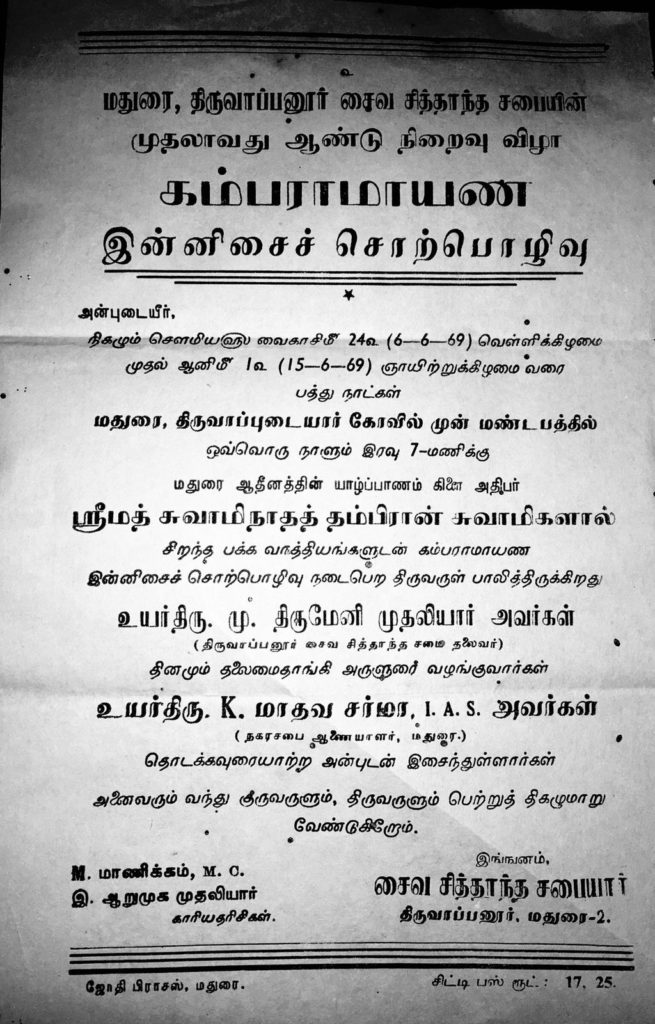 உ
மதுரை, திருவாப்பனூர் சைவ சித்தாந்த சபையின்
முதலாவது ஆண்டு நிறைவு விழா
கம்பராமாயண
இன்னிசைச் சொற்பொழிவு
அன்புடையீர்,
நிகழும் சௌமிய௵ வைகாசிமீ 24௳ (6—6—69) வெள்ளிக்கிழமை
முதல் ஆனிமீ 1௳ (15—6—69) ஞாயிற்றுக்கிழமை வரை
பத்து நாட்கள்
மதுரை, திருவாப்புடையார் கோவில் முன் மண்டபத்தில்
ஒவ்வொரு நாளும் இரவு 7-மணிக்கு
மதுரை ஆதீனத்தின் யாழ்ப்பாணம் கிளை அதிபர்
ஸ்ரீமத் சுவாமிநாதத் தம்பிரான் சுவாமிகளால்
சிறந்த பக்க வாத்தியங்களுடன் கம்பராமாயண
இன்னிசைச் சொற்பொழிவு நடைபெற திருவருள் பாலித்திருக்கிறது
உயர்திரு. மு. திருமேனி முதலியார் அவர்கள்
(திருவாப்பனூர் சைவ சித்தாந்த சபை தலைவர்)
தினமும் தலைமைதாங்கி அருளுரை வழங்குவார்கள்
உயர்திரு. K. மாதவ சர்மா, I. A. S. அவர்கள்
(நகரசபை ஆணையாளர், மதுரை.)
தொடக்கவுரையாற்ற அன்புடன் இசைந்துள்ளார்கள்
அனைவரும் வந்து குருவருளும், திருவருளும் பெற்றுத் திகழுமாறு
வேண்டுகிறோம்.
M. மாணிக்கம், M. C.
இ. ஆறுமுக முதலியார்
காரியதரிசிகள்.
இங்ஙனம்,
சைவ சித்தாந்த சபையார்
திருவாப்பனூர், மதுரை-2.
ஜோதி பிரசஸ், மதுரை.
சிட்டி பஸ் ரூட்: 17, 25.